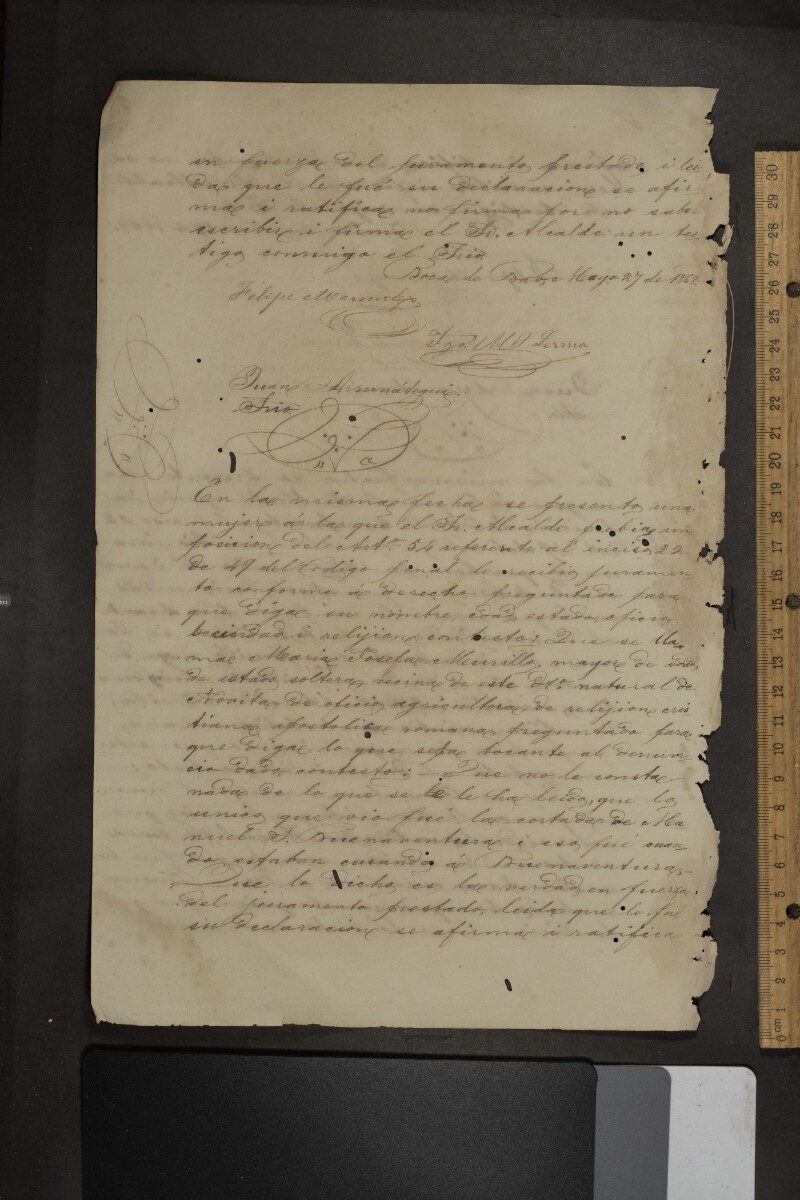 en fuerza del juramento prestado i lei
da que le fué su declaracion se afir
ma i ratifica no firma por no saber
escribir i firma el Sr. Alcalde un tes
tigo conmigo el Srio
Boca de Bebe Mayo 27 de
Felipe Marmolejo
Tgo. M S Lerma
Juan
Srio
En la misma fecha se presentó una
mujer á la que el Sr. Alcalde prebia im
posicion del Arto. 54 referente al inciso 22
de 49 del Codigo penal le recibio juramen
to conforme á derecho, preguntada para
que diga su nombre, edad, estado, oficio,
becindad i relijion contestó: Que se lla
ma Maria Josefa Murillo, mayor de edad,
de estado soltera, vecina de este dto. natural de
Novita, de oficio agricultora, de relijion cris
tiana apostolica romana, preguntada para
que diga lo que sepa tocante al denun
cio dado, contestó: – Que no le consta
nada de lo que se le ha leido, que lo
unico que vio fué la cortada de Ma
nuel S. Buenaventura i eso fué cuan
do estaban curando á Buenaventura –
Que lo dicho es la verdad en fuerza
del juramento prestado, leida que le fué
su declaracion se afirma i ratifica